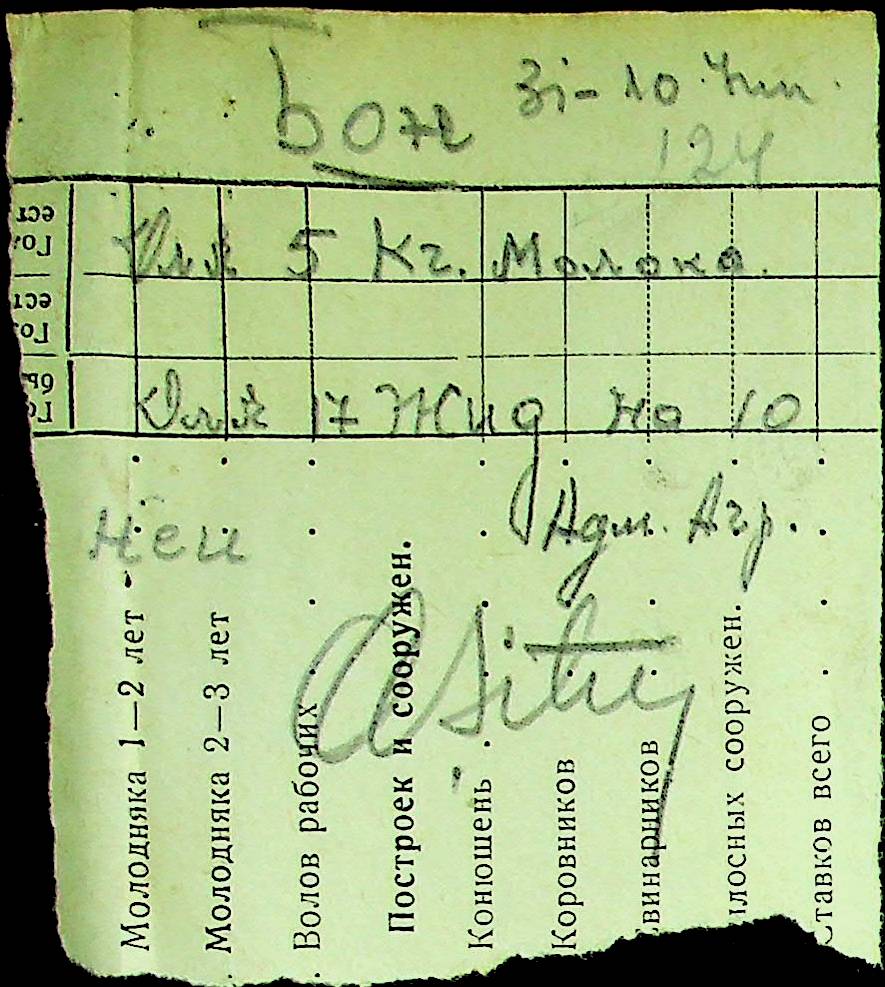 Зі- 10
124
Для 5 Кг. Молока.
Для 17 Жид на 10
Адм. Агр.
Молодняка 1—2 лет
Молодняка 2—3 лет
Волов рабочих
Построек и сооружен.
Конюшень
Коровников
винарников
лосных сооружен.
Ставков всего